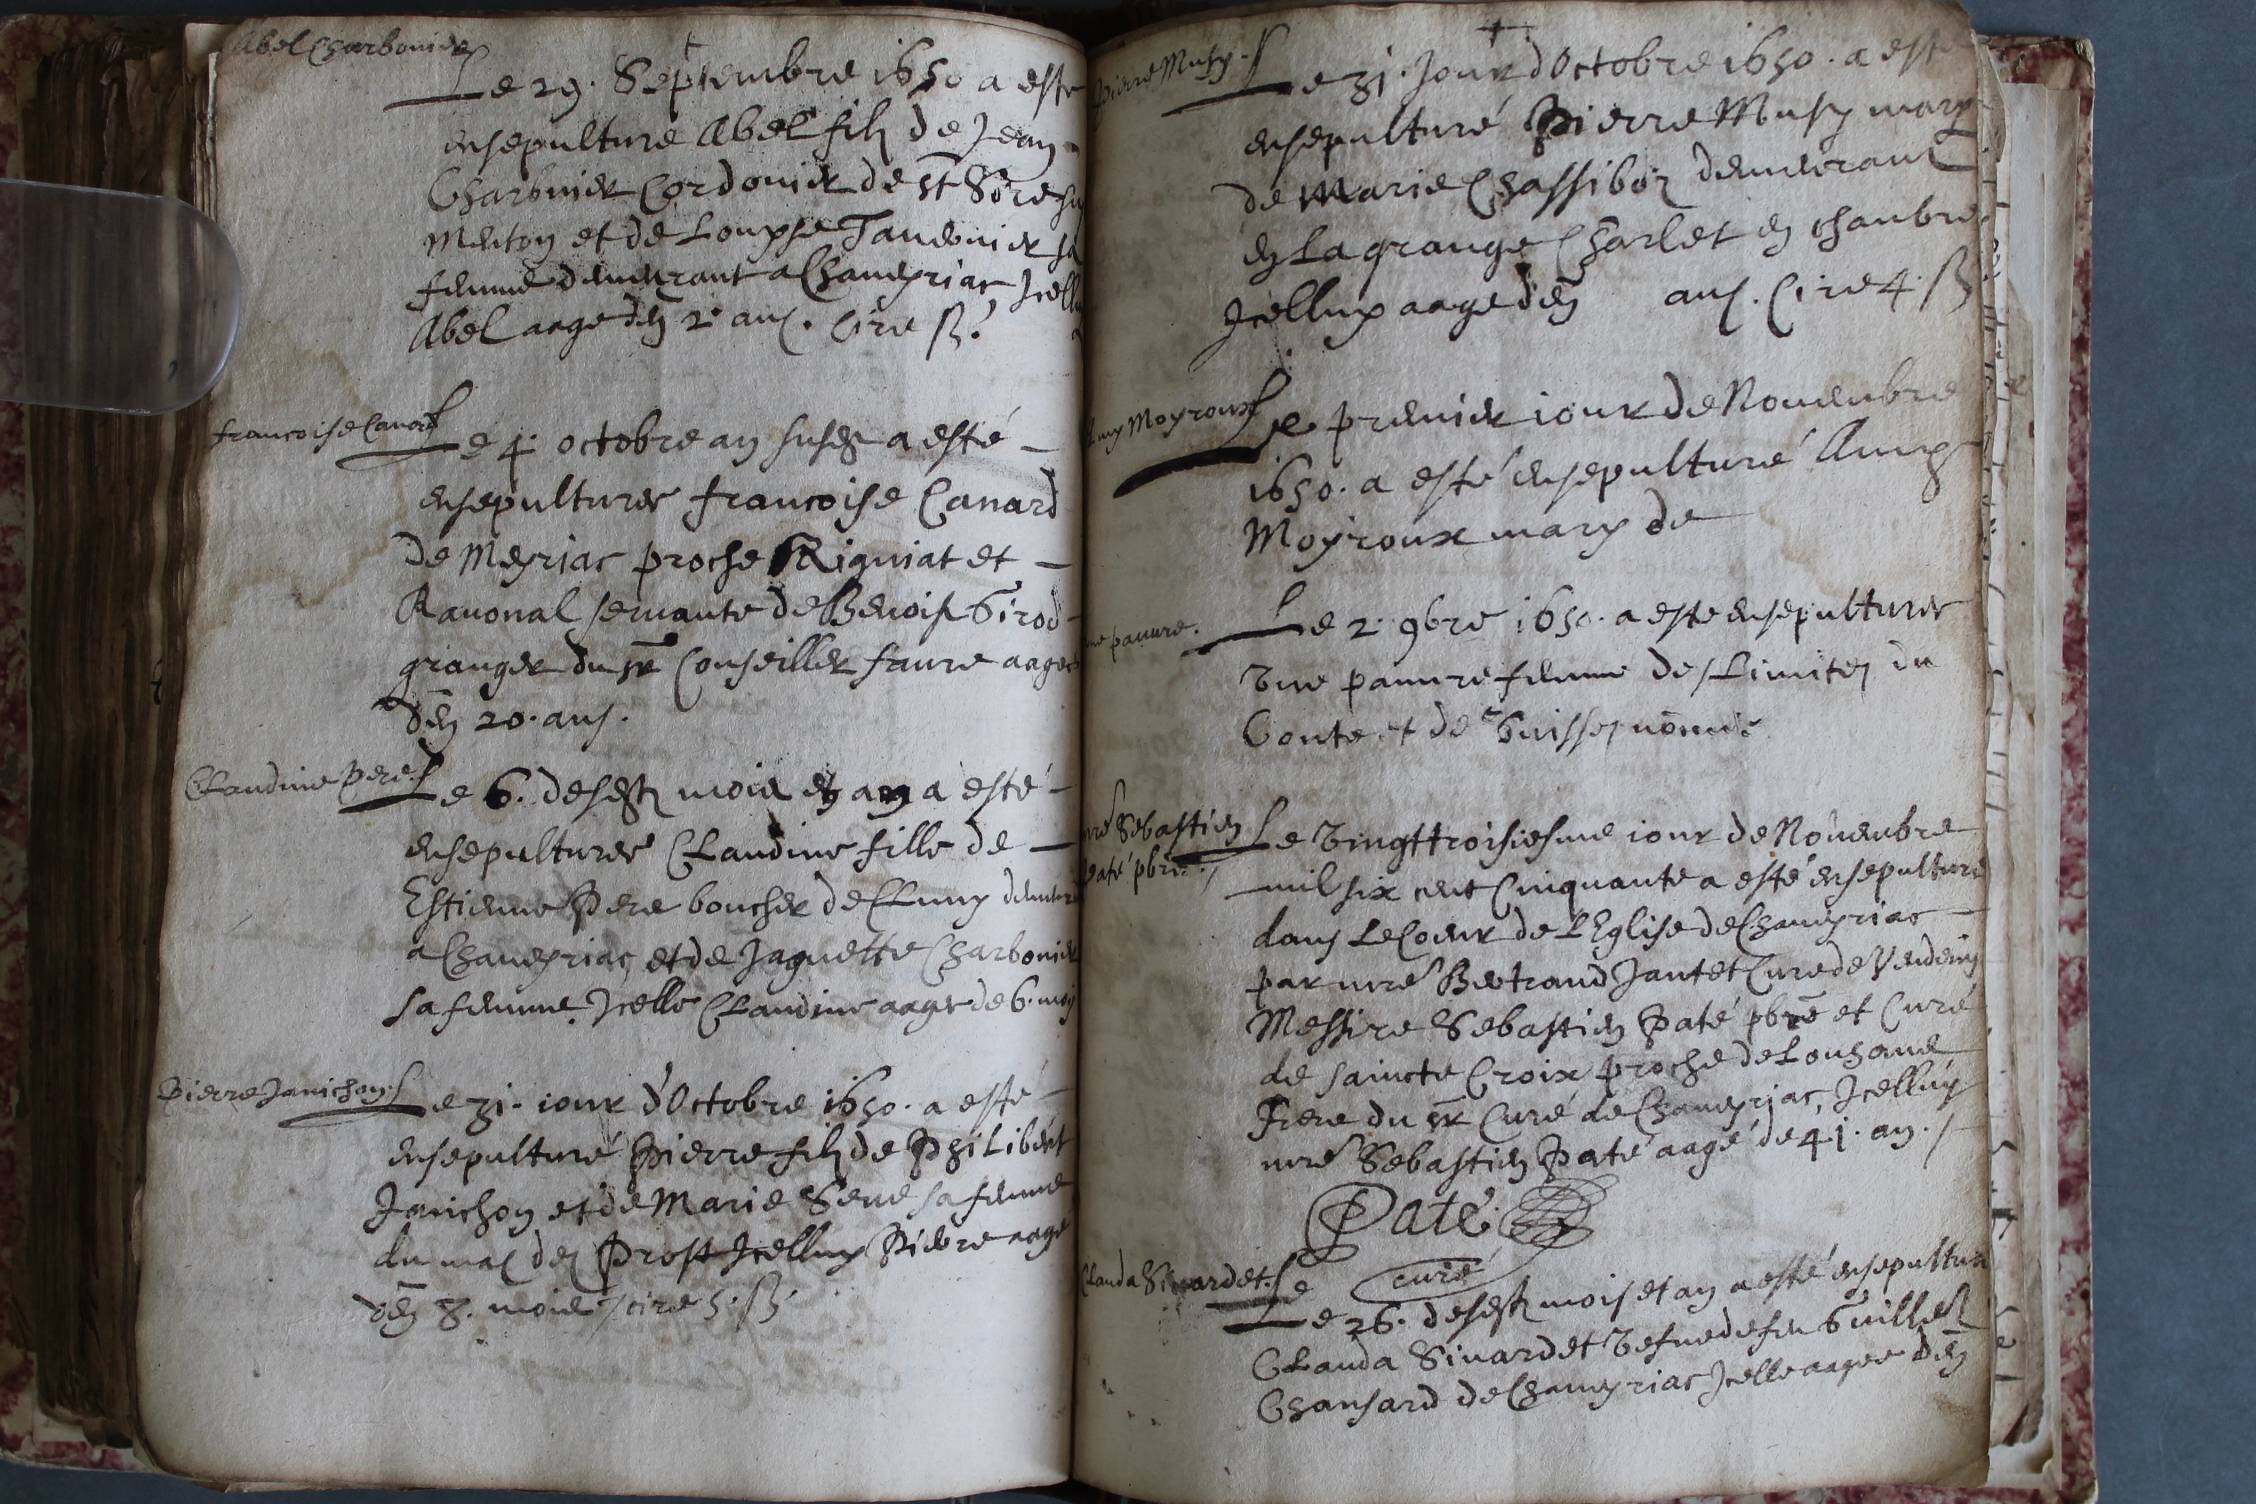 Abel Charbonier
Le 29. Septembre 1650 a esté
ensepulture Abel filz de Jean
Charbonier Cordonier de St
Menton et de Loupse Tavernier sa
femme demeurant a Chaveyriac, Icelluy
Abel aagé d'en. 2. ans. Cire
francoise Canard
Le 4. octobre an susd. a esté
ensepulturee francoise Canard
de Meyriac proche Rigniat et
Ravonal servante de Benoist Girod
granger du sr Conseiller faure aagee
d'en. 20. ans.
Claudine Pere
Le 6. desd. mois et an a esté
ensepulturee Claudine fille de
Estienne Pere boucher de Cluny demeurant
a Chaveyriac, et de Jaquette Charbonier
sa femme. Icelle Claudine aagee de 6. mois
Pierre Janichon
Le 31. iour d'Octobre 1650. a esté
ensepulturé Pierre filz de Philibert
Janichon et de Marie Seve sa femme
du mas des Prost Icelluy Pierre aagé
d'en. 8. mois / cire 3. ß.
Pierre Musy
Le 31. Jour d'Octobre 1650. a esté
ensepulturé Pierre Musy mary
de Marie demeurant
en La grange Charlet en chambre
Icelluy aagé d'en. ans. Cire 4. ß
Amy Moyroux
Le premier iour de Novembre
1650. a esté ensepulturé Amy
Moyroux mary de
une pauvre.
Le 2. 9bre 1650. a esté ensepulturee
Une pauvre femme des Limites du
Conte et de nommée
mre Sebastien
Paté pbre.
Le Vingttroisiesme iour de Novembre
mil six cent Cinquante a esté ensepulturé
dans Le Coeur de L'Eglise de Chaveyriac
par mre Bertrand Jantet Curé de Vendeins
Messire Sebastien Paté pbre et Curé
de saincte Croix proche de Louhans
Frere du sr Curé de Chaveyriac, Icelluy
mre Sebastien Paté aagé de 41. an. /
Paté
curé
Clauda Sivardet
Le 26. desd. mois et an a esté ensepulturee
Clauda Sivardet Vefve de feu Guille
Chansard de Chaveyriac Icelle aagee d'en.